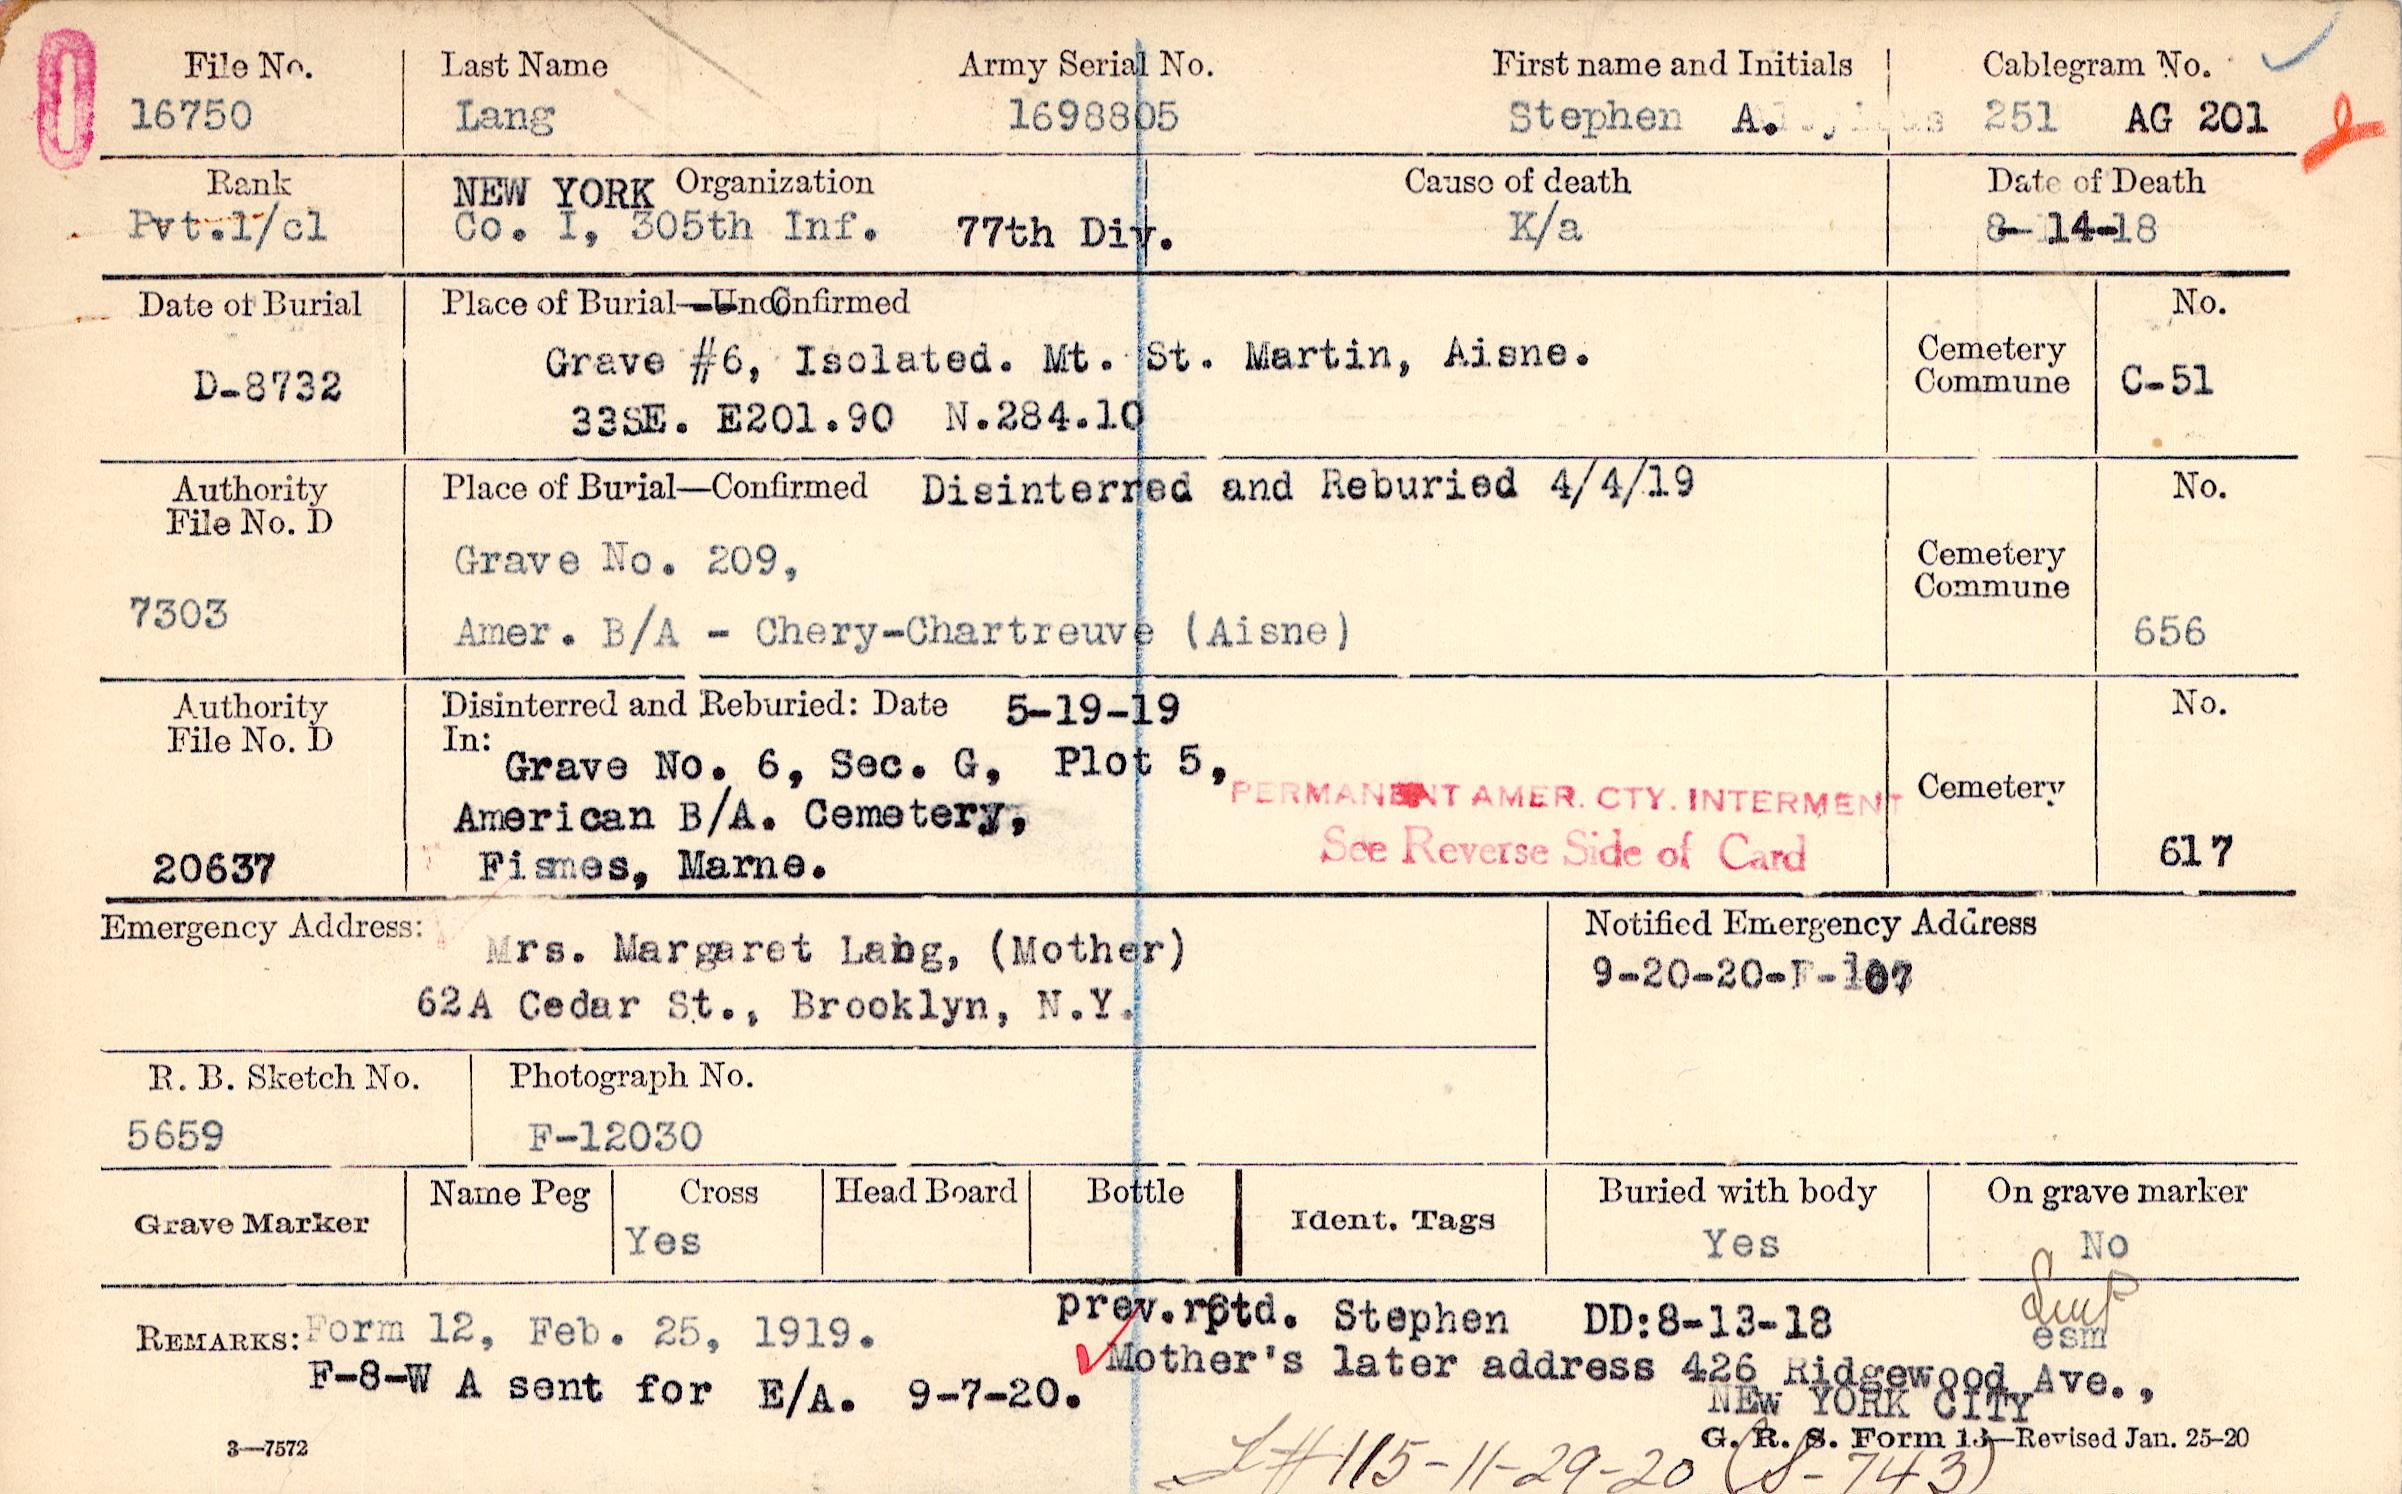 File No. Last Name Army Serial No. First name and Initials Cablegram No.
16750 Lang 1698805 Stephen A. 251 AG 201
Rank NEW YORK Organization Cause of death Date of Death
Pvt.1/cl Co. I, 305th Inf. 77th Div. K/a 8-14-18
Date of Burial Place of Burial—UnConfirmed No.
Grave #6, Isolated. Mt. St. Martin, Aisne. Cemetery
D-8732 Commune C-51
33SE. E201.90 N.284.10
Authority Place of Burial—Confirmed Disinterred and Reburied 4/4/19 No.
File No. D
Grave No. 209, Cemetery
Commune
7303
Amer. B/A - Chery-Chartreuve (Aisne) 656
Authority Disinterred and Reburied: Date 5-19-19 No.
File No. D In:
Grave No. 6, Sec. G, Plot 5,
PERMANENT AMER. CTY. INTERMENT Cemetery
American B/A. Cemetery,
See Reverse Side of Card 617
20637 Fismes, Marne.
Emergency Address: Notified Emergency Address
Mrs. Margaret Lang, (Mother) 9-20-20-F-107
62A Cedar St., Brooklyn, N.Y.
R. B. Sketch No. Photograph No.
5659 F-12030
Name Peg Cross Head Board Bottle Buried with body On grave marker
Grave Marker Ident. Tags
Yes Yes No
prev.rptd. Stephen DD:8-13-18
REMARKS: Form 12, Feb. 25, 1919. esm
Mother's later address 426 Ridgewood Ave.,
F-8-W A sent for E/A. 9-7-20.
NEW YORK CITY
3—7572 G. R. S. Form 13—Revised Jan. 25-20
#115-11-29-20 (S-743)